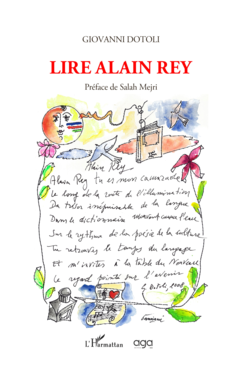 GIOVANNI DOTOLI
LIRE ALAIN REY
Préface de Salah Mejri
Alain Rey
Alain Rey tu es mon camarade
Le long de la route de l'illumination
Du trésor inépuisable de la langue
Dans le dictionnaire
Sur le rythme de la poésie de la culture
Tu retraces le temps du langage
Et m'invites à la table du
Le regard pointé sur l'avenir
L'Harmattan
aga